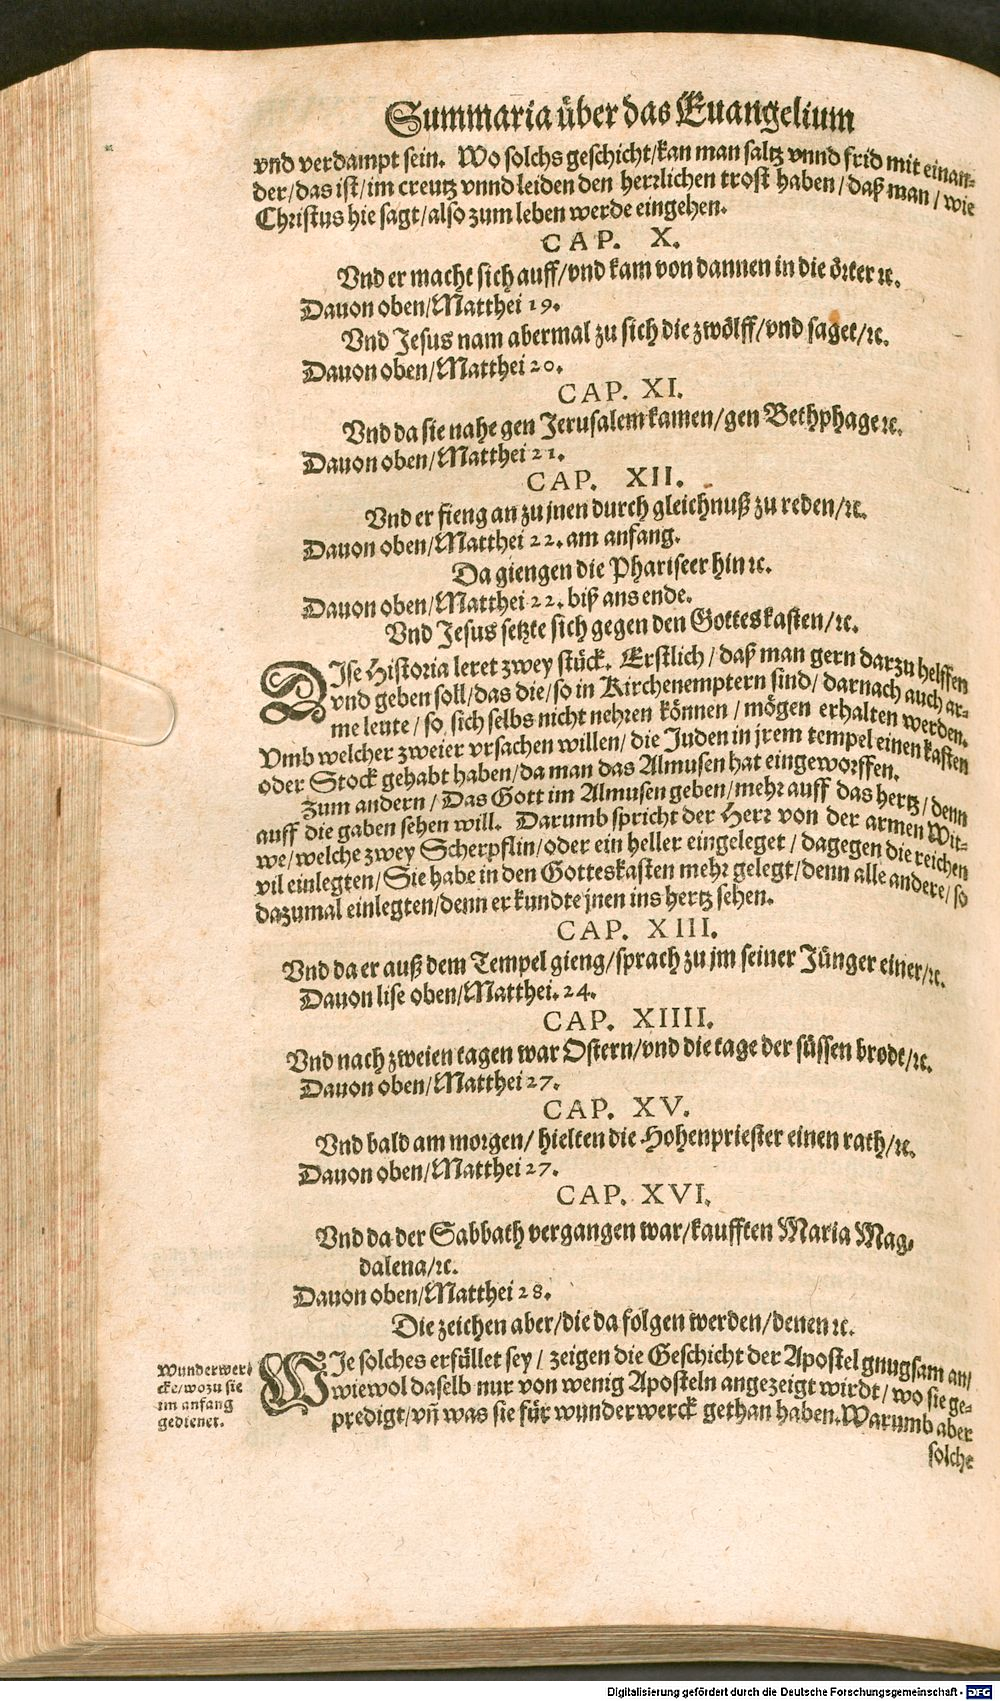 Summaria über das Euangelium
vnd verdampt sein. Wo solchs geschicht/kan man saltz vnnd frid mit einan-
der/das ist/im creutz vnnd leiden den herrlichen trost haben/daß man/wie
Christus hie sagt/also zum leben werde eingehen.
CAP. X.
Vnd er macht sich auff/vnd kam von dannen in die örter ꝛc.
Dauon oben/Matthei 19.
Vnd Jesus nam abermal zu sich die zwölff/vnd saget/ꝛc.
Dauon oben/Matthei 20.
CAP. XI.
Vnd da sie nahe gen Jerusalem kamen/gen Bethphage ꝛc.
Dauon oben/Matthei 21.
CAP. XII.
Vnd er fieng an zu jnen durch gleichnuß zu reden/ꝛc.
Dauon oben/Matthei 22. am anfang.
Da giengen die Phariseer hin ꝛc.
Dauon oben/Matthei 22. biß ans ende.
Vnd Jesus setzte sich gegen den Gotteskasten/ꝛc.
DIse Historia leret zwey stück. Erstlich/daß man gern darzu helffen
vnd geben soll/das die/so in Kirchenemptern sind/darnach auch ar-
me leute/so sich selbs nicht nehren können/mögen erhalten werden.
Vmb welcher zweier vrsachen willen/die Juden in jrem tempel einen kasten
oder Stock gehabt haben/da man das Almusen hat eingeworffen.
Zum andern/Das Gott im Almusen geben/mehr auff das hertz/denn
auff die gaben sehen will. Darumb spricht der Herr von der armen Wit-
we/welche zwey Scherpflin/oder ein heller eingeleget/dagegen die reichen
vil einlegten/Sie habe in den Gotteskasten mehr gelegt/denn alle andere/so
dazumal einlegten/denn er kundte jnen ins hertz sehen.
CAP. XIII.
Vnd da er auß dem Tempel gieng/sprach zu jm seiner Jünger einer/ꝛc.
Dauon lise oben/Matthei. 24.
CAP. XIIII.
Vnd nach zweien tagen war Ostern/vnd die tage der süssen brodt/ꝛc.
Dauon oben/Matthei 27.
CAP. XV.
Vnd bald am morgen/hielten die Hohenpriester einen rath/ꝛc.
Dauon oben/Matthei 27.
CAP. XVI.
Vnd da der Sabbath vergangen war/kaufften Maria Mag-
dalena/ꝛc.
Dauon oben/Matthei 28.
Die zeichen aber/die da folgen werden/denen ꝛc.
Wunderwer-
cke/wozu sie
im anfang
gedienet.
WJe solches erfüllet sey/zeigen die Geschicht der Apostel gnugsam an/
wiewol daselb nur von wenig Aposteln angezeigt wirdt/wo sie ge-
predigt/vñ was sie für wunderwerck gethan haben. Warumb aber
solche
Digitalisierung gefördert durch die Deutsche Forschungsgemeinschaft - DFG